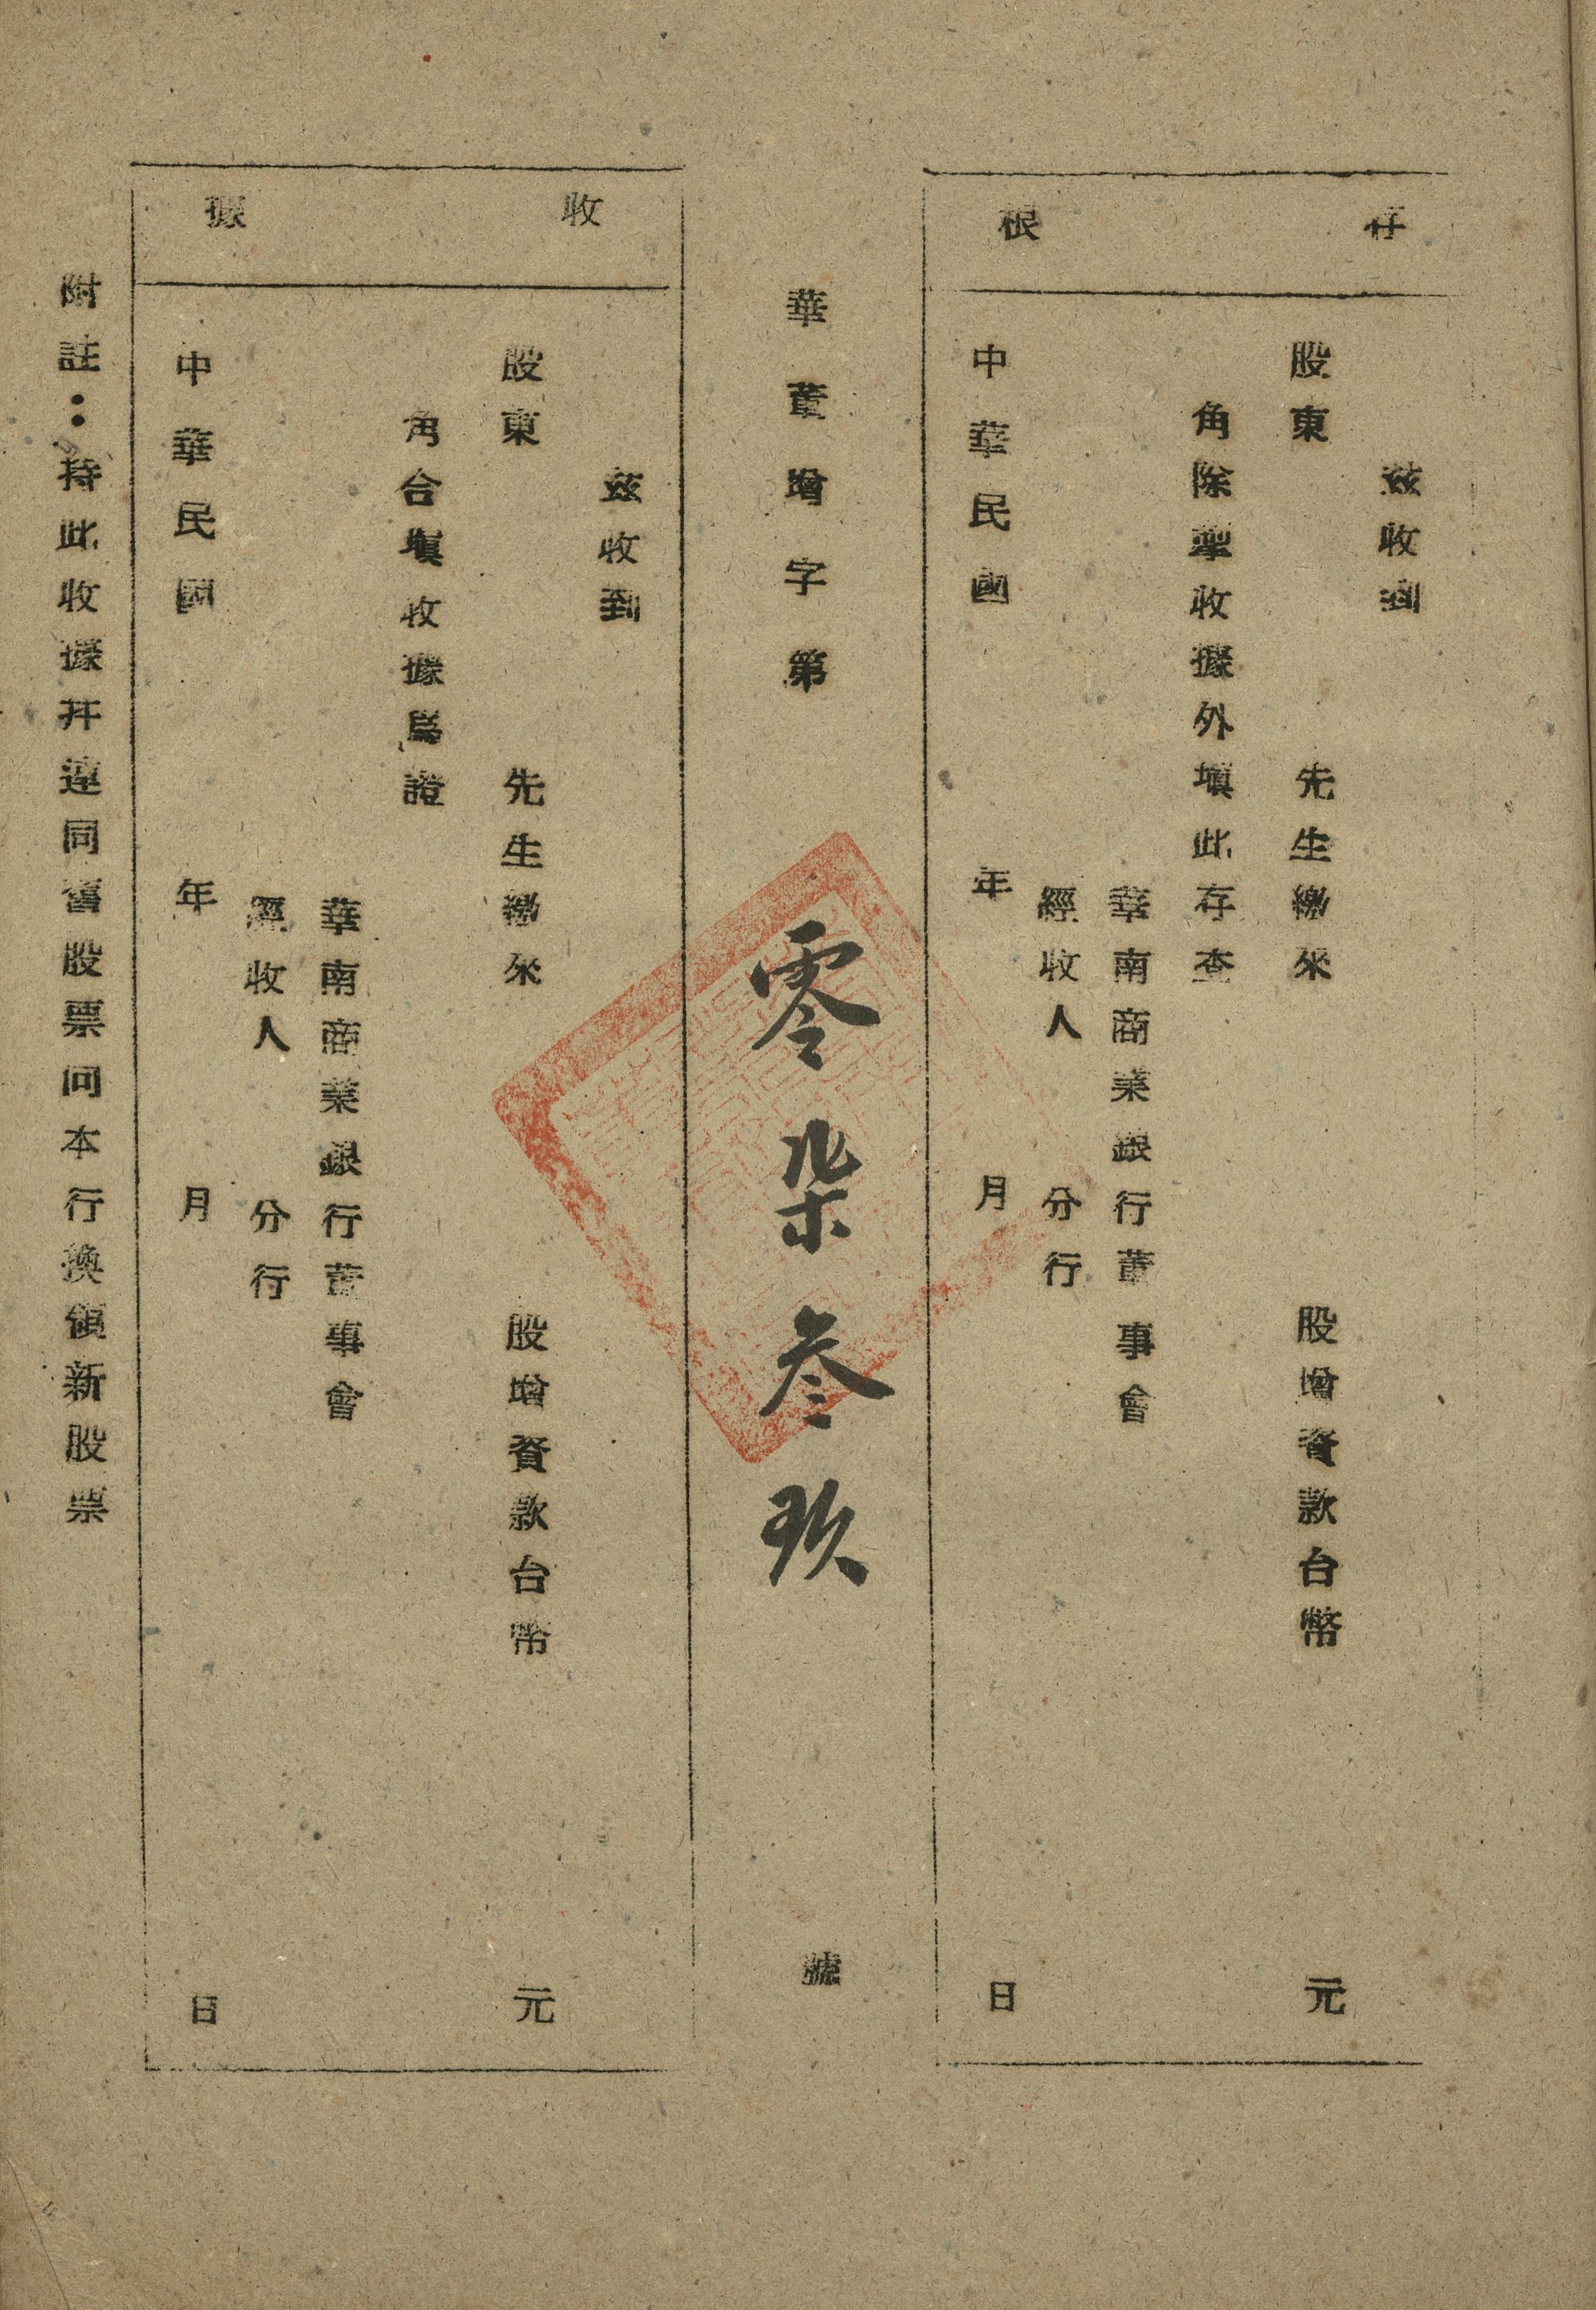 存根
茲收到
股東 先生繳來 股增資款台幣 元
角除掣收據外填此存查
華南商業銀行董事會
經收人 分行
中華民國 年 月 日
華董增字第 零柒叁玖 號
收據
茲收到
股東 先生繳來 股增資款台幣 元
角合填收據爲證
華南商業銀行董事會
經收人 分行
中華民國 年 月 日
附註：持此收據并連同舊股票向本行換領新股票